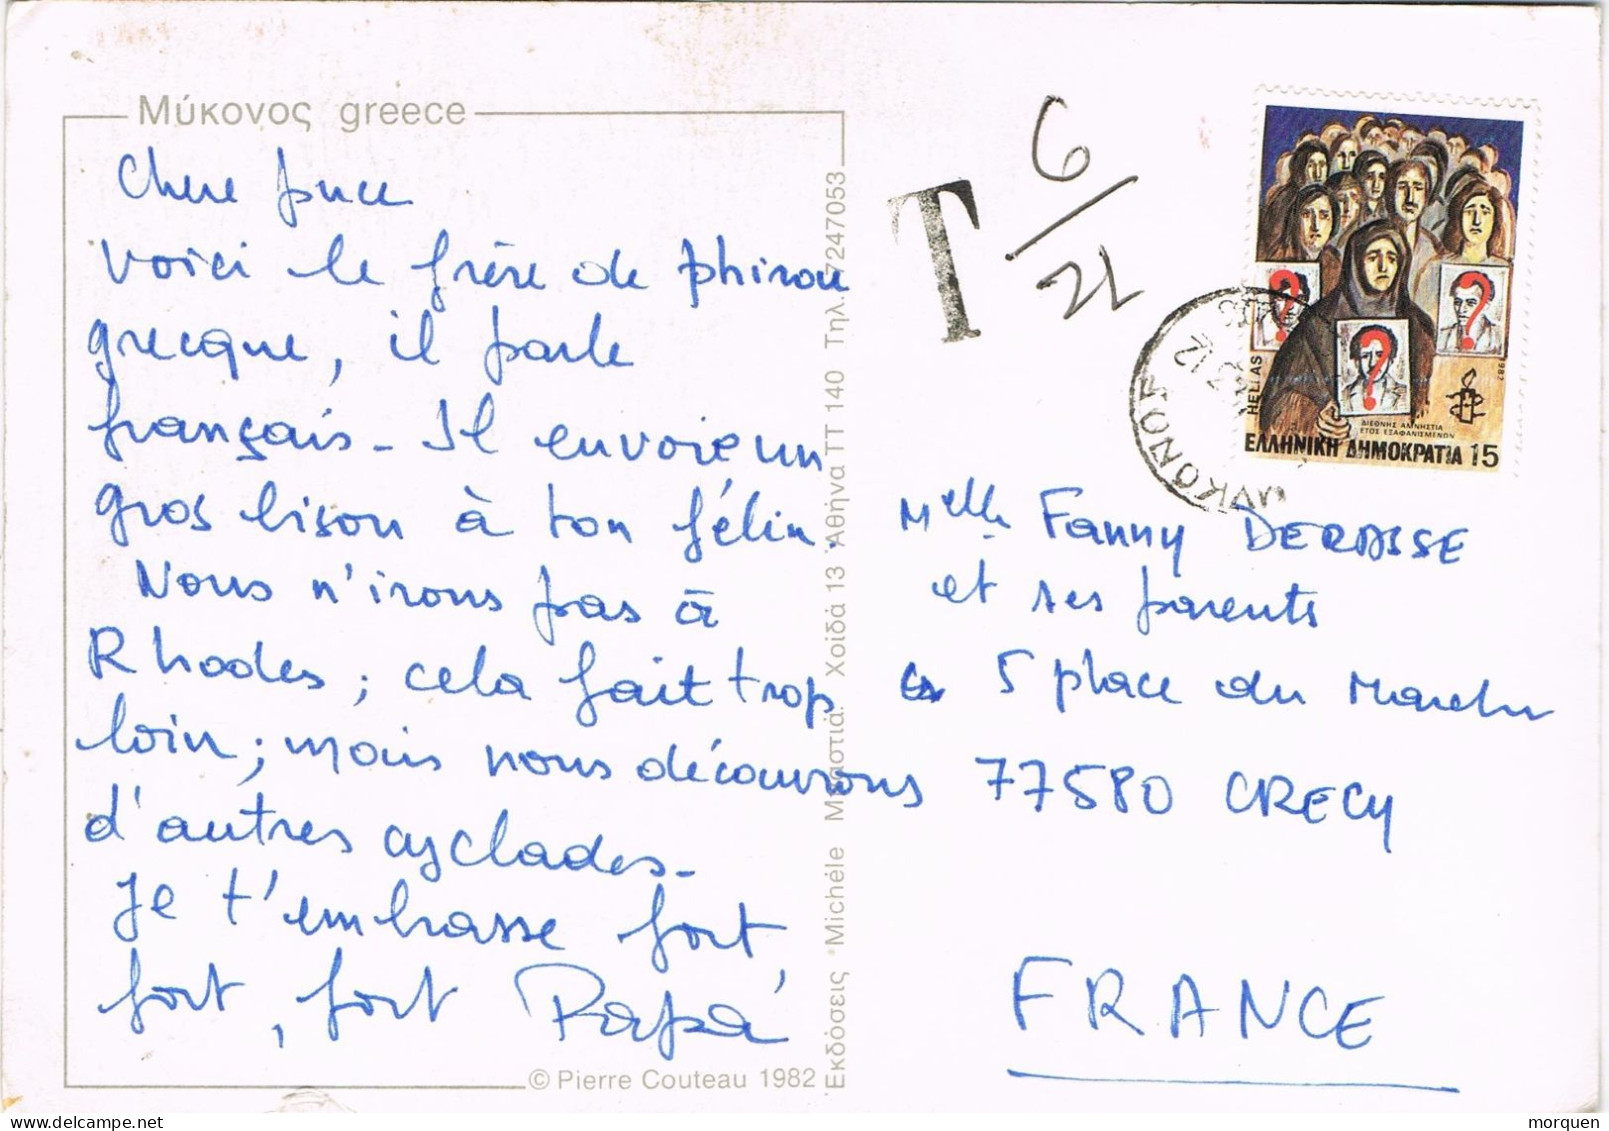 Μύκονος greece
Chere puce
Voici le frère de phirou
grecque, il parle
français - Il envoie un
gros bison à ton félin.
Nous n'irons pas à
Rhodes ; cela fait trop
loin ; mais nous découvrons
d'autres cyclades -
Je t'embrasse fort,
fort, fort Papa
© Pierre Couteau 1982
Εκδόσεις "Michéle Χοϊδά 13 Αθήνα ΤΤ 140 Τηλ. 7247053
T
6/21
HELLAS
1982
ΔΙΕΘΝΗΣ ΑΜΝΗΣΤΙΑ
ΕΤΟΣ ΕΞΑΦΑΝΙΣΜΕΝΩΝ
ΕΛΛΗΝΙΚΗ ΔΗΜΟΚΡΑΤΙΑ 15
ΜΥΚΟΝΟΣ
Melle Fanny DERAISSE
et ses parents
5 place du Marche
77580 CRECY
FRANCE
morquen